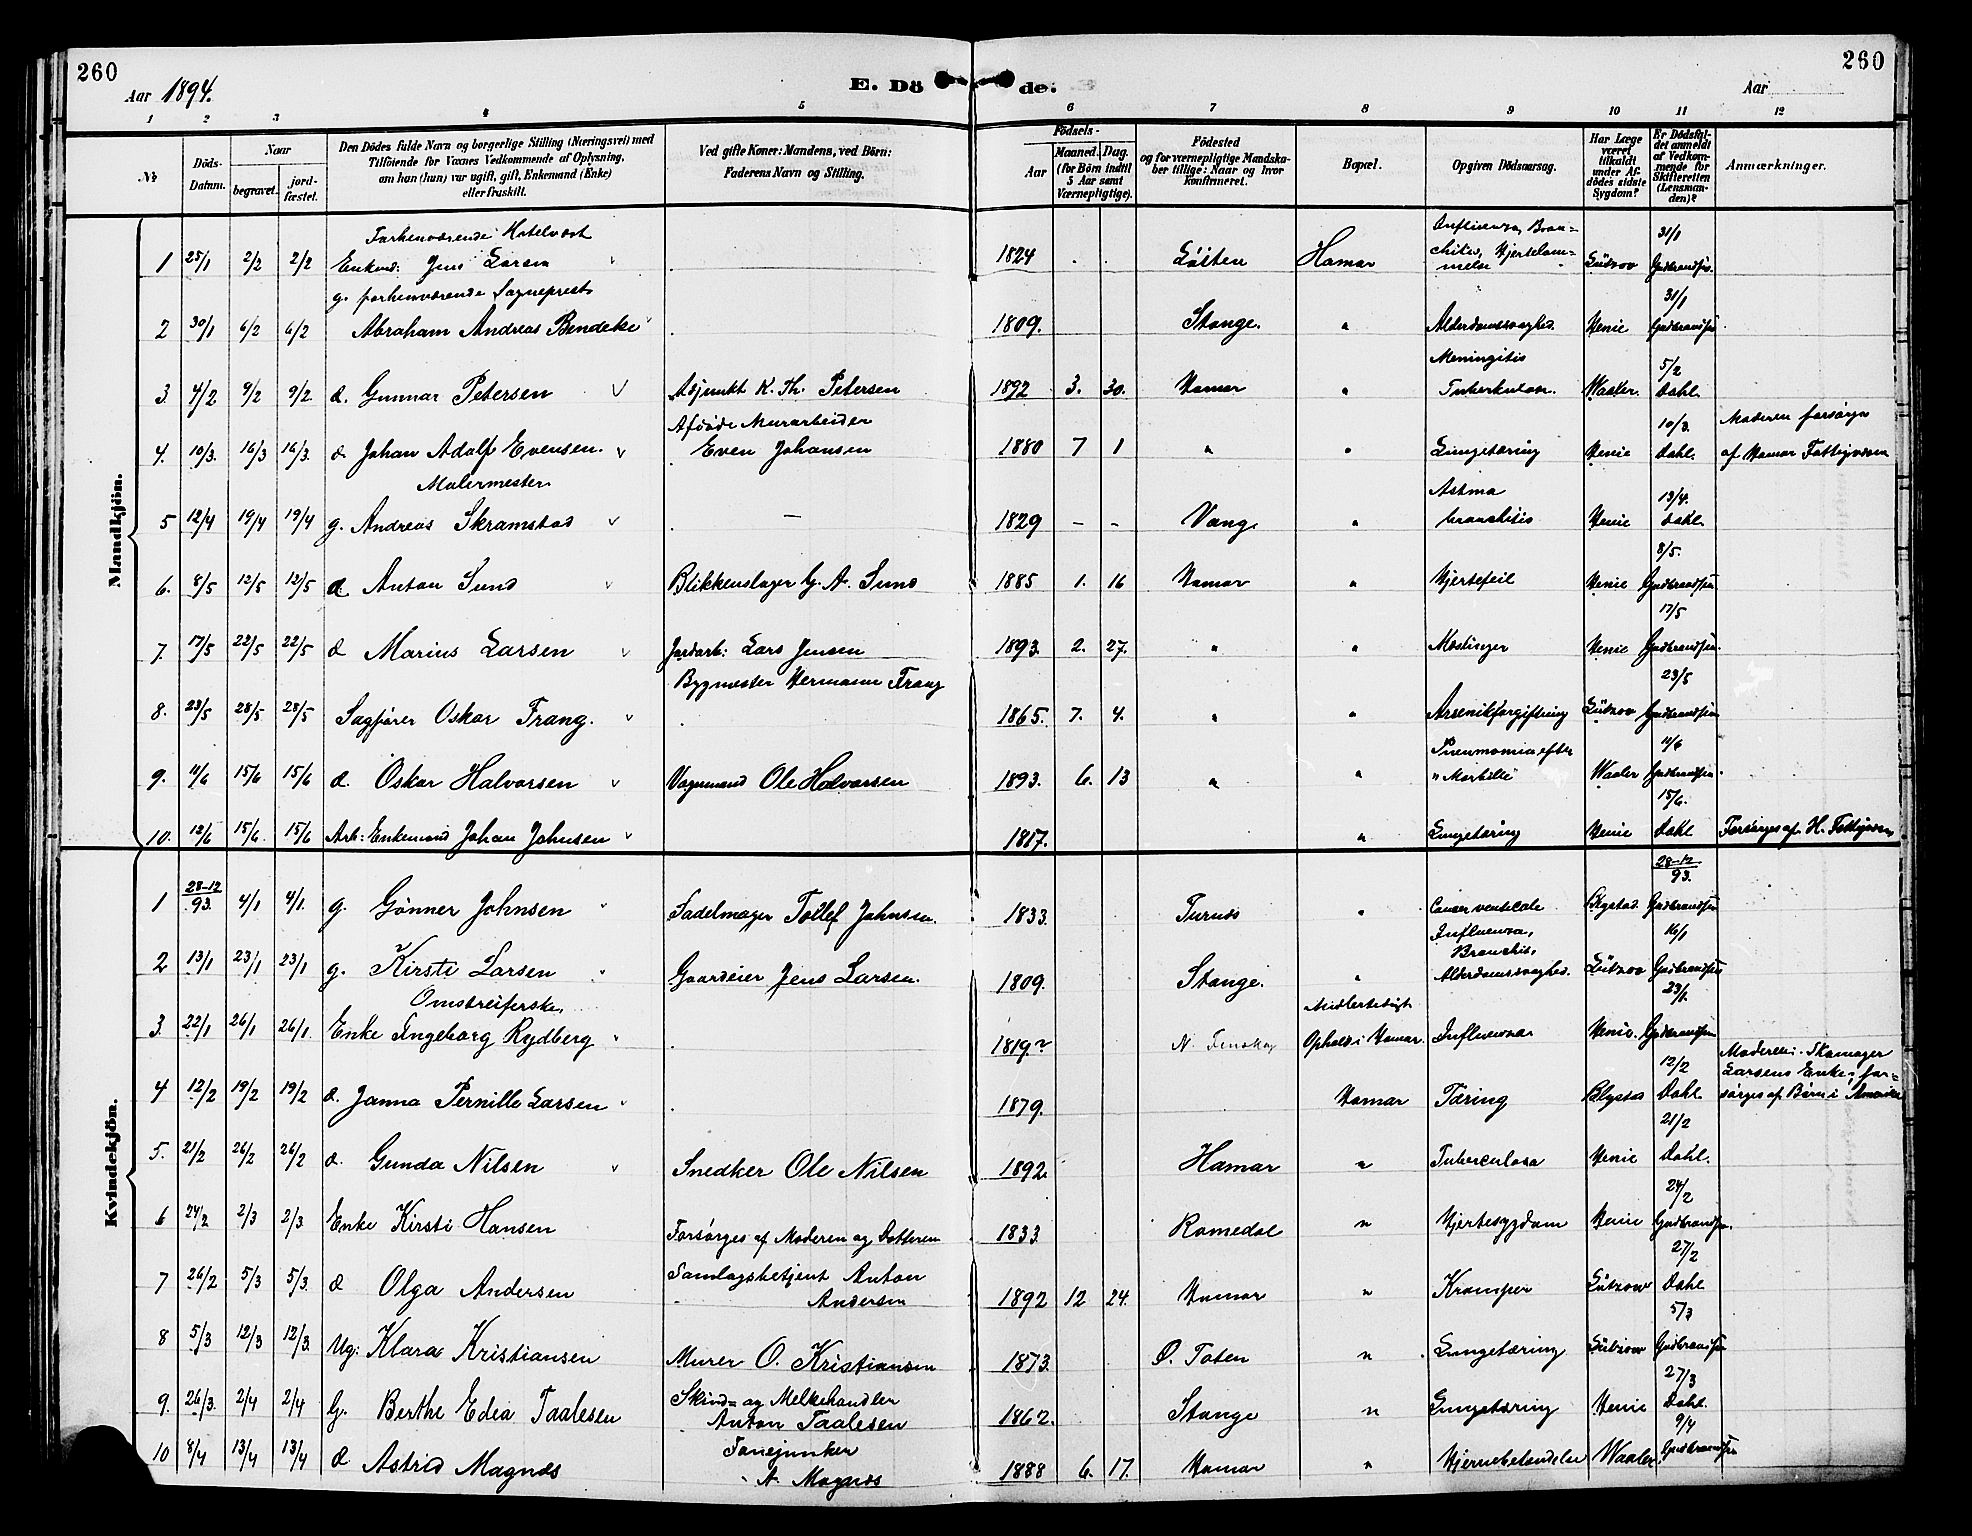 260
260
Aar 1894.
E. Dö de.
Aar
1 2 3 4 5 6 7 8 9 10 11 12
No
Döds-Datum.
Naar
begravet.
jord-fæstet.
Den Dödes fulde Navn og borgerlige Stilling (Næringsvei) med
Tilföiende for Voxnes Vedkommende af Oplysning,
om han (hun) var ugift, gift, Enkemand (Enke)
eller fraskilt.
Ved gifte Koner: Mandens, ved Börn:
Faderens Navn og Stilling.
Födsels-
Aar
Maaned. Dag.
(for Börn indtil
5 Aar samt
Værnepligtige).
Födested
og for værnepligtige Mandska-
ber tillige: Naar og hvor
konfirmeret.
Bopæl.
Opgiven Dödsaarsag.
Har Læge
været
tilkaldt
under Af-
dödes sidste
Sygdom?
Er Dödsfal-
det anmeldt
af Vedkom-
mende for
Skifteretten
(Lensman-
den)?
Anmærkninger.
Mandkjön.
Forhenværende Hotelvært Influenza, Bron- 31/1
1 25/1 2/2 2/2 Enkmd: Jens Larsen 1824 Löiten Hamar chitis, Hjertelam-melse Lützow Gudbrandsen
g. forhenværende Sogneprest 31/1
2 30/1 6/2 6/2 Abraham Andreas Bendeke 1809. Stange. " Alderdomssvaghed. Henie Gudbrandsen
Meningitis 5/2
3. 4/2 9/2 9/2 d. Gunnar Petersen Adjunkt K. Th. Petersen 1892 3. 30. Hamar " Tuberkulose. Waaler. Dahl.
Afdöde Murarbeider 10/3. Moderen forsörges
4. 10/3. 16/3 16/3. d. Johan Adolf Evensen. Even Johansen 1880 7 1 " " Lungetæring Henie Dahl. af Hamar Fattigvæsen
Malermester Astma 13/4.
5 12/4 19/4 19/4 g. Andreas Skramstad — 1829 – – Vang " bronchitis Henie Dahl.
8/5.
6. 8/5 12/5 12/5 d Anton Sund Blikkenslager G. A. Sund 1885 1. 16 Hamar " Hjertefeil Henie Gudbrandsen
17/5
7. 17/5 22/5 22/5 d Marius Larsen Jordarb: Lars Jensen 1893. 2. 27. " " Mæslinger Henie Gudbrandsen.
Bygmester Hermann Frang 23/5
8. 23/5 28/5 28/5 Sagförer Oskar Frang. 1865. 7. 4. " " Arsenikforgiftning Lützow Gudbrandsen
Pneumonia efter 11/6
9. 11/6 15/6 15/6 d. Oskar Halvorsen Vognmand Ole Halvorsen 1893. 6. 13 " " " Morbilli Waaler Gudbrandsen.
15/6.
10. 12/6 15/6. 15/6 Arb: Enkemand Johan Johnsen 1817. " Lungetæring Henie Dahl Forsörges af H. Fattigvæsen
Kvindekjön.
28-12/93.
1 28-12/93. 4/1 4/1. g. Gönner Johnsen Sadelmager Tollef Johnsen. 1833. Furnes " Cancer ventriculi Blystad. Gudbrandsen
Influenza, 16/1
Bronchit,
2 13/1 23/1 23/1 g. Kirsti Larsen Gaardeier Jens Larsen. 1809. Stange. " Alderdomssvaghed. Lützow Gudbrandsen
Omstreiferske, Midlertidigt 23/1.
3. 22/1 26/1 26/1. Enke Ingeborg Rydberg 1819? N. Finskog Ophold i Hamar. Influenza Henie. Gudbrandsen
12/2 Moderen: Skomager
Larsens Enke, for-
4 12/2 19/2 19/2 d. Janna Pernille Larsen 1879. Hamar Tæring Blystad Dahl. sörges af Börn i Amerika
21/2
5. 21/2 26/2 26/2 d. Gunda Nilsen Snedker Ole Nilsen 1892. Hamar " Tuberculosa Henie Dahl.
24/2
6 24/2 2/3 2/3 Enke Kirsti Hansen Forsörges af Moderen og Datteren 1833. Romedal " Hjertesygdom Henie Gudbrandsen.
27/2
7 26/2 5/3 5/3. d Olga Andersen Samlagsbetjent Anton Andersen 1892 12 24. Hamar " Kramper Lützow Dahl
5/3
8 5/3 12/3 12/3. Ug: Klara Kristiansen Murer O. Kristiansen 1873. Ø. Toten " Lungetæring Lützow Gudbrandsen
27/3
9. 26/3. 2/4 2/4 G. Berthe Edea Taalesen Skind- og Melkehandler Anton Taalesen 1862. Stange " Lungetæring Henie Dahl.
9/4
10 8/4 13/4 13/4 d Astrid Magnæs N. Magnæs 1888 6. 17. Hamar " Hjernebetændelse Waaler Gudbrandsen